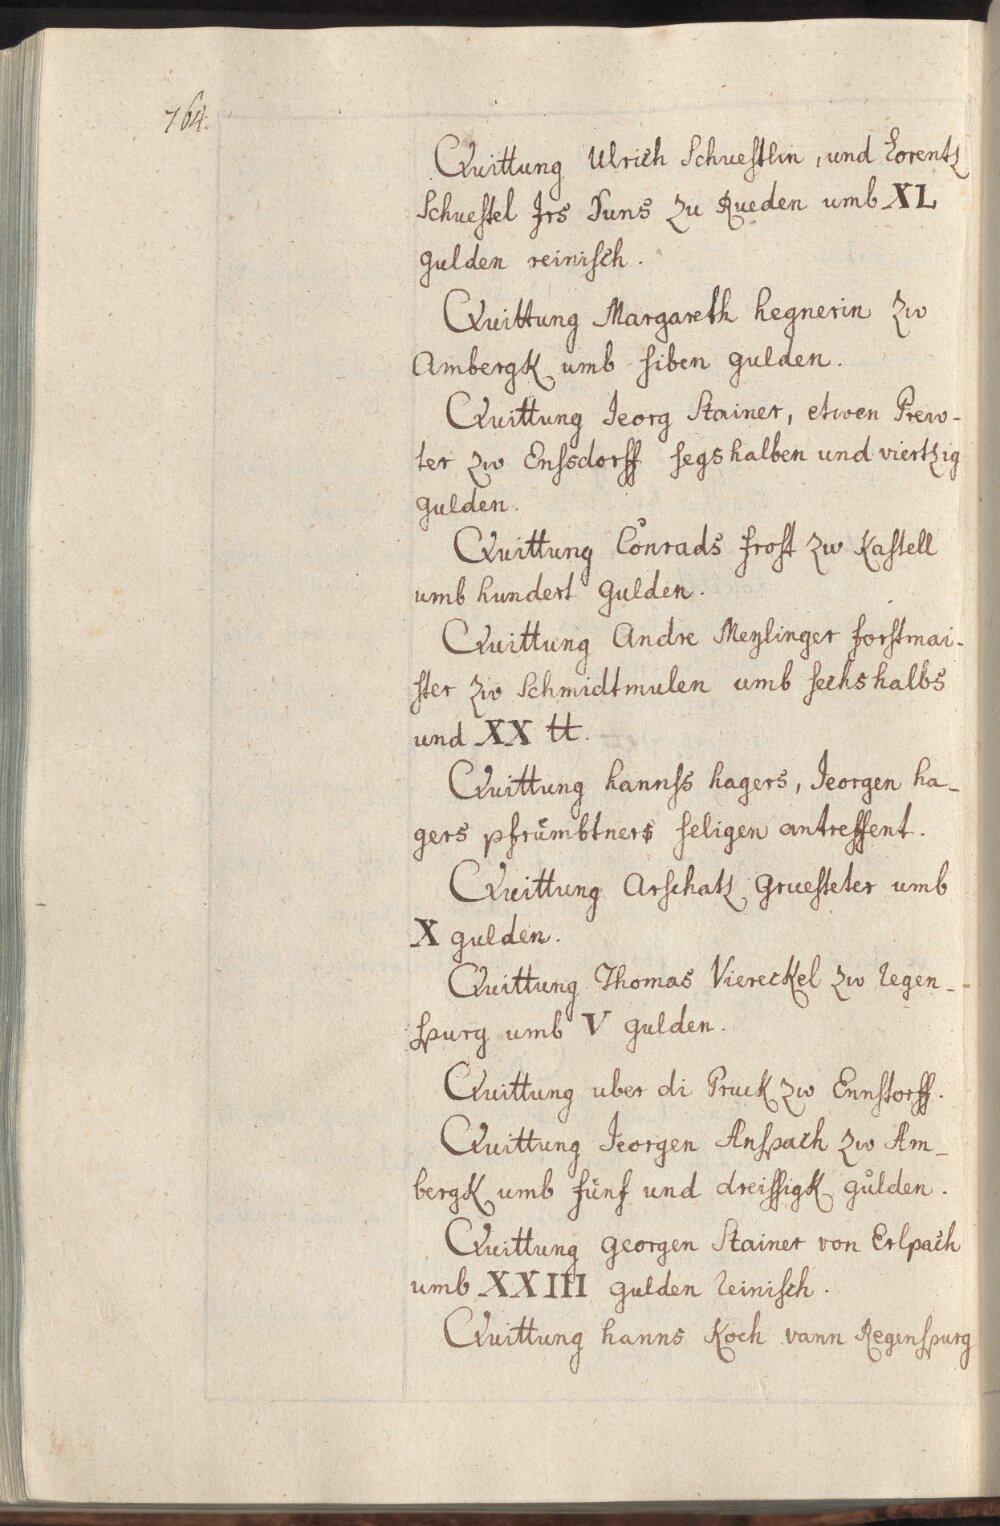 764.
Quittung Ulrich Schuestlin, und Lorentz
Schuestel Irs Suns zu Rueden umb XL
gulden reinisch.
Quittung Margareth hegnerin zw
Ambergk umb siben gulden.
Quittung Jeorg Stainer, etwen Prew-
ter zw Ensdorff segshalben und viertzig
gulden.
Quittung Conrads frost zw Kastell
umb hundert gulden.
Quittung Andre Meylinger forstmai-
ster zw Schmidtmulen umb sechshalbs
und XX tt.
Quittung hannss hagers, Jeorgen ha-
gers pfrümbtners seligen antreffent.
Quittung Arschatz Gruesteter umb
X gulden.
Quittung Thomas Viereckel zw regen-
spurg umb V gulden.
Quittung uber di Pruck zw Ennstorff.
Quittung Jeorgen Anspach zw Am-
bergk umb fünf und dreissigk gulden.
Quittung georgen Stainer von Erlpach
umb XXIII gulden reinisch.
Quittung hanns Koch vann Regenspurg